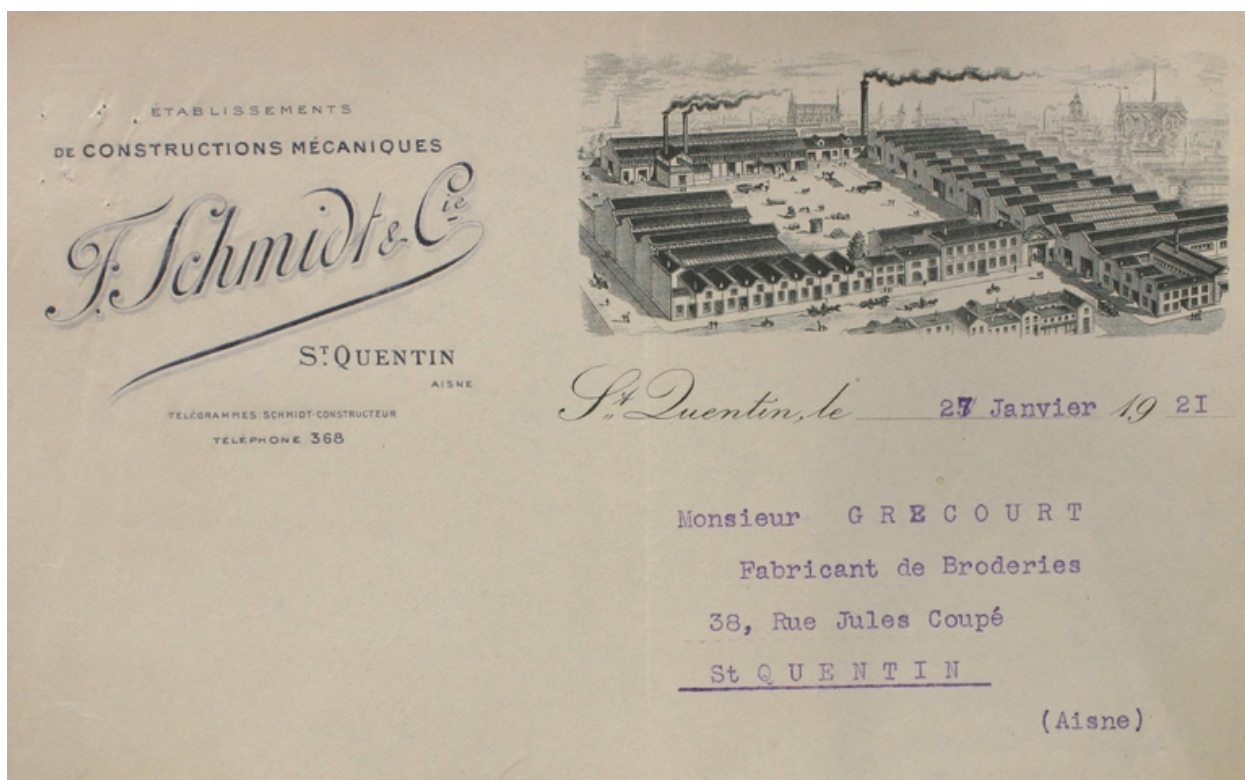 ÉTABLISSEMENTS
DE CONSTRUCTIONS MÉCANIQUES
F. Schmidt & Cie
ST QUENTIN
AISNE
TÉLÉGRAMMES: SCHMIDT-CONSTRUCTEUR
TÉLÉPHONE 368
St Quentin, le 27 Janvier 1921
Monsieur GRECOURT
Fabricant de Broderies
38, Rue Jules Coupé
St QUENTIN
(Aisne)